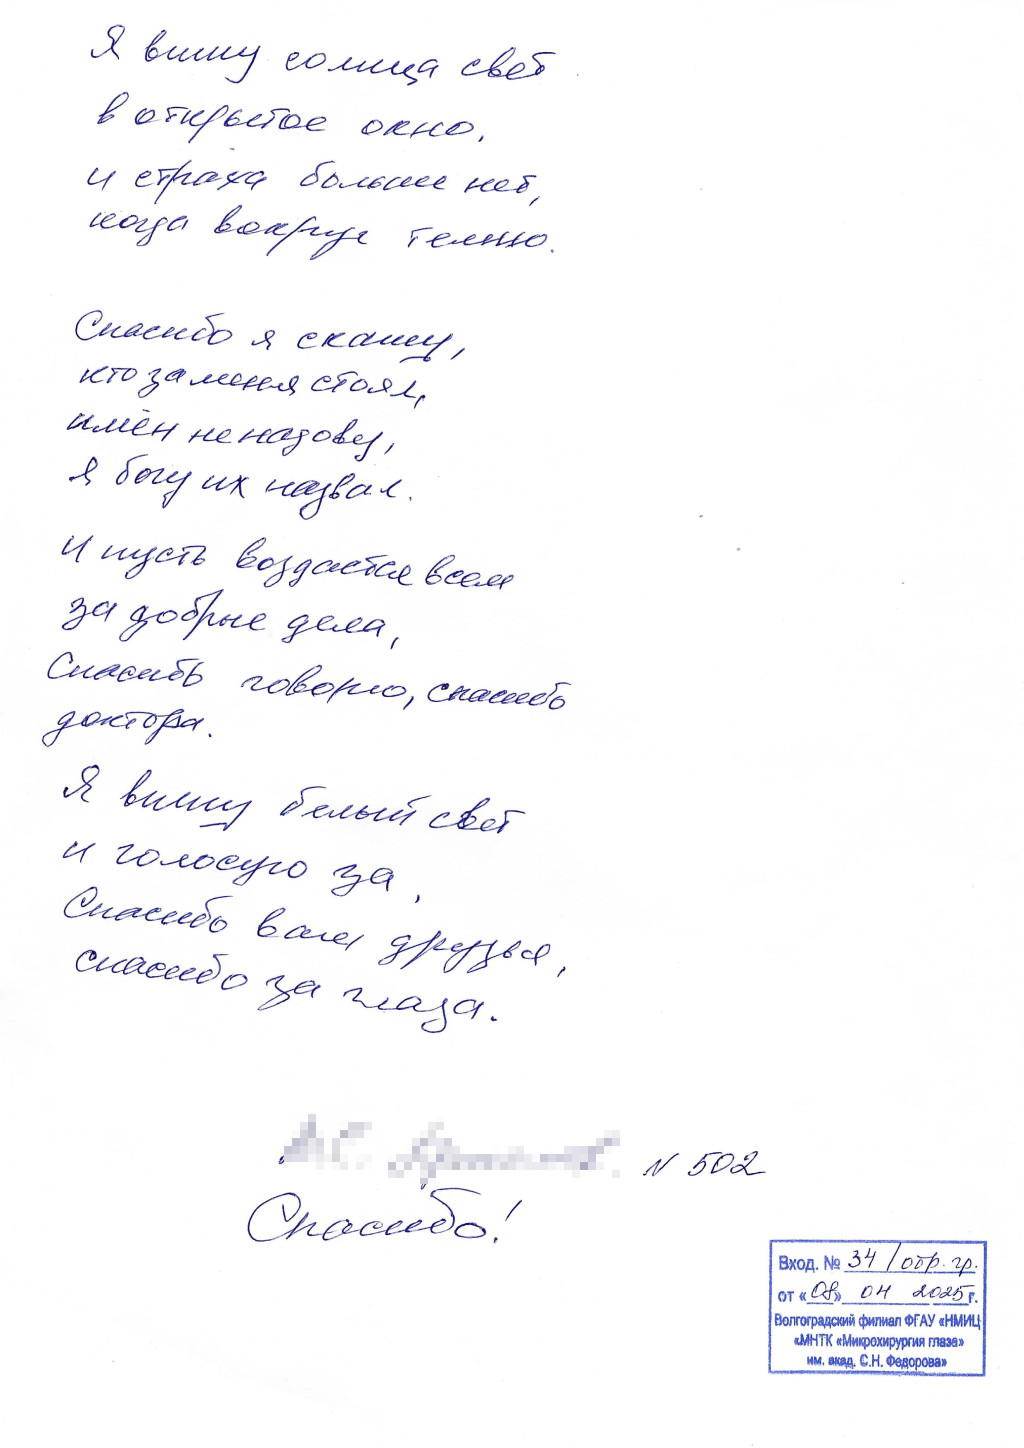 Я вижу солнца свет
в открытое окно.
и страха больше нет,
когда вокруг темно.
Спасибо я скажу,
кто за меня стоял,
имён не назову,
Я богу их назвал.
И пусть воздастся всем
за добрые дела,
Спасибо говорю, спасибо
доктора.
Я вижу белый свет
и голосую за,
Спасибо вам друзья,
спасибо за глаза.
N 502
Спасибо!
Вход. № 34/обр. гр.
от «08» 04 2025 г.
Волгоградский филиал ФГАУ «НМИЦ
«МНТК «Микрохирургия глаза»
им. акад. С.Н. Федорова»